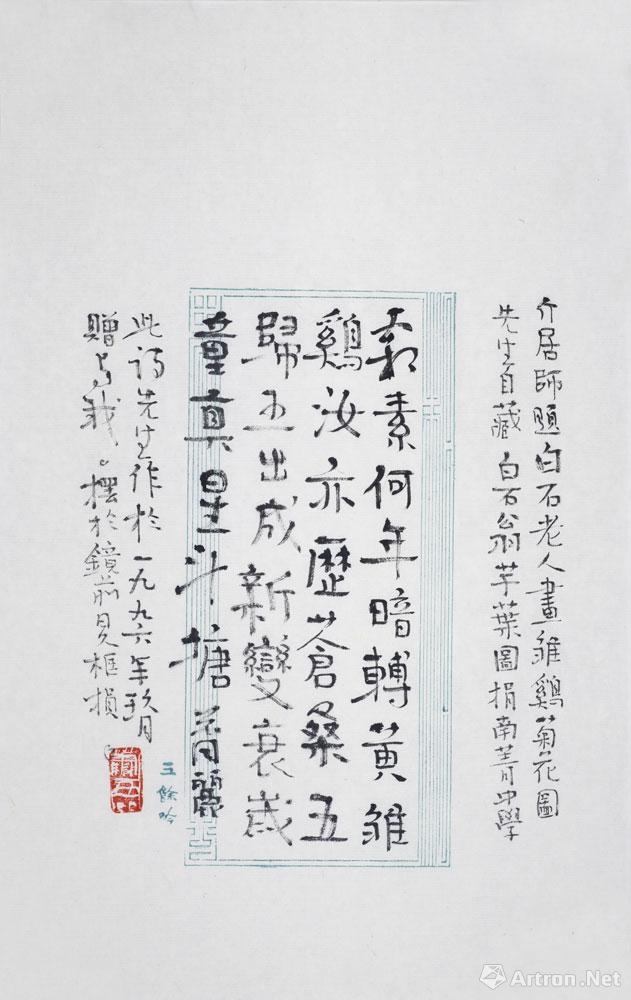 介居師題白石老人畫雏鷄菊花圖
先生自藏白石翁芋葉圖捐南菁中學
素何年暗轉黄雏
鷄汝亦歷蒼桑五
歸五出成新變衰歲
童真星斗塘
此詩先生作於一九九六年玖月
贈与我。摆於鏡前見框損
三餘吟
Artron.Net